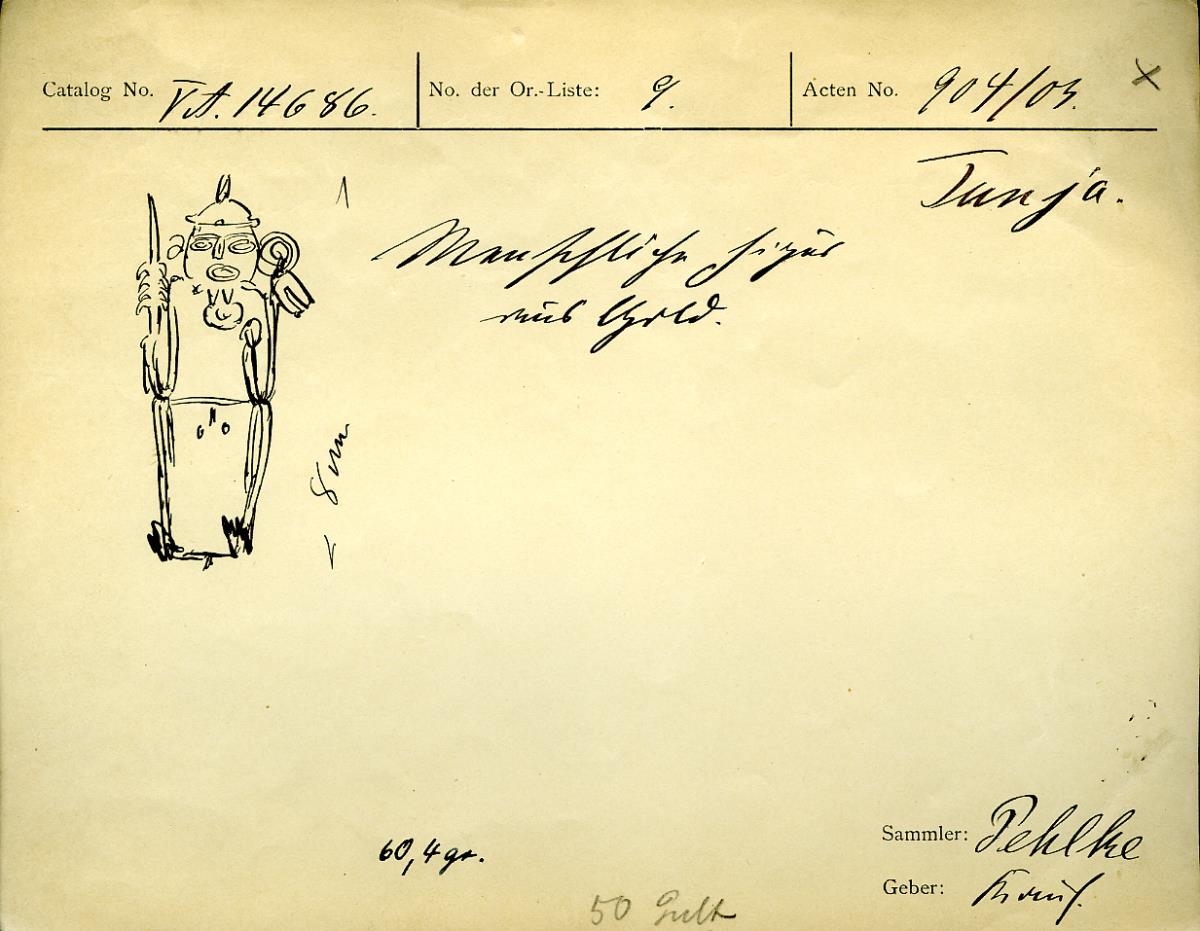 Catalog No. VA. 14686. No. der Or.-Liste: 9. Acten No. 904/03. ×
Tunja.
Menschliche Figur
aus Gold.
8 cm
60,4 gr.
Sammler: Pehlke
Geber: Kauf.
50